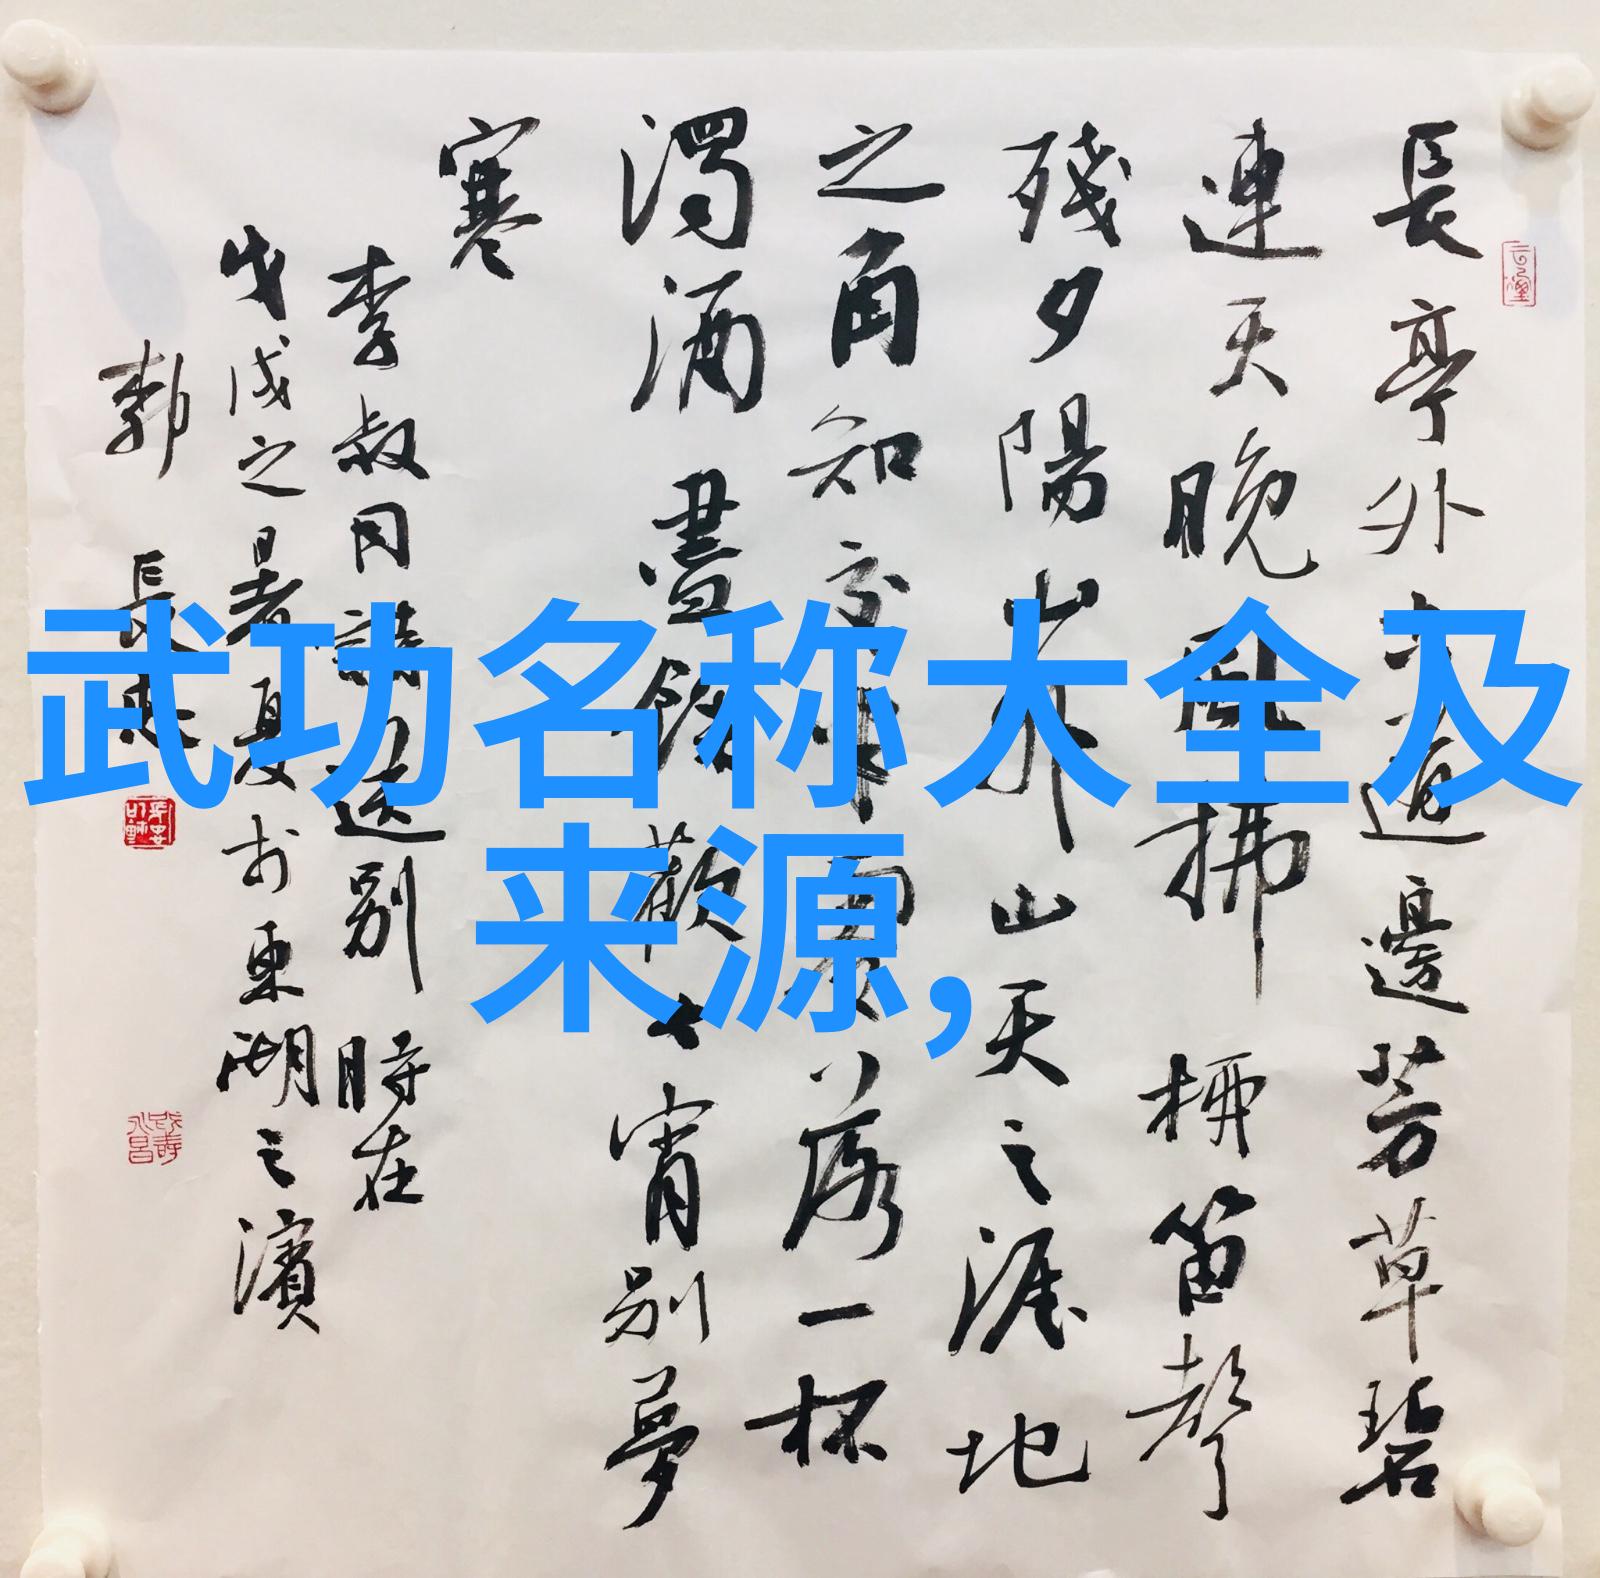 長亭外古道邊芳草碧
連天晚風拂柳笛聲
殘夕陽山外山天之涯地
之角知交半零落一杯
濁酒盡餘歡今宵別夢
寒
李叔同詩送别 時在
戊戌之暑夏於東湖之濱
長
武功名称大全及
来源,